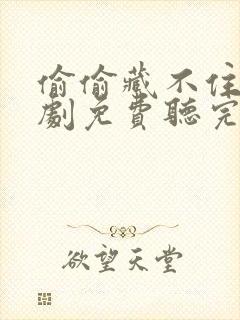 偷偷藏不住
劇免費聽完
欲望天堂